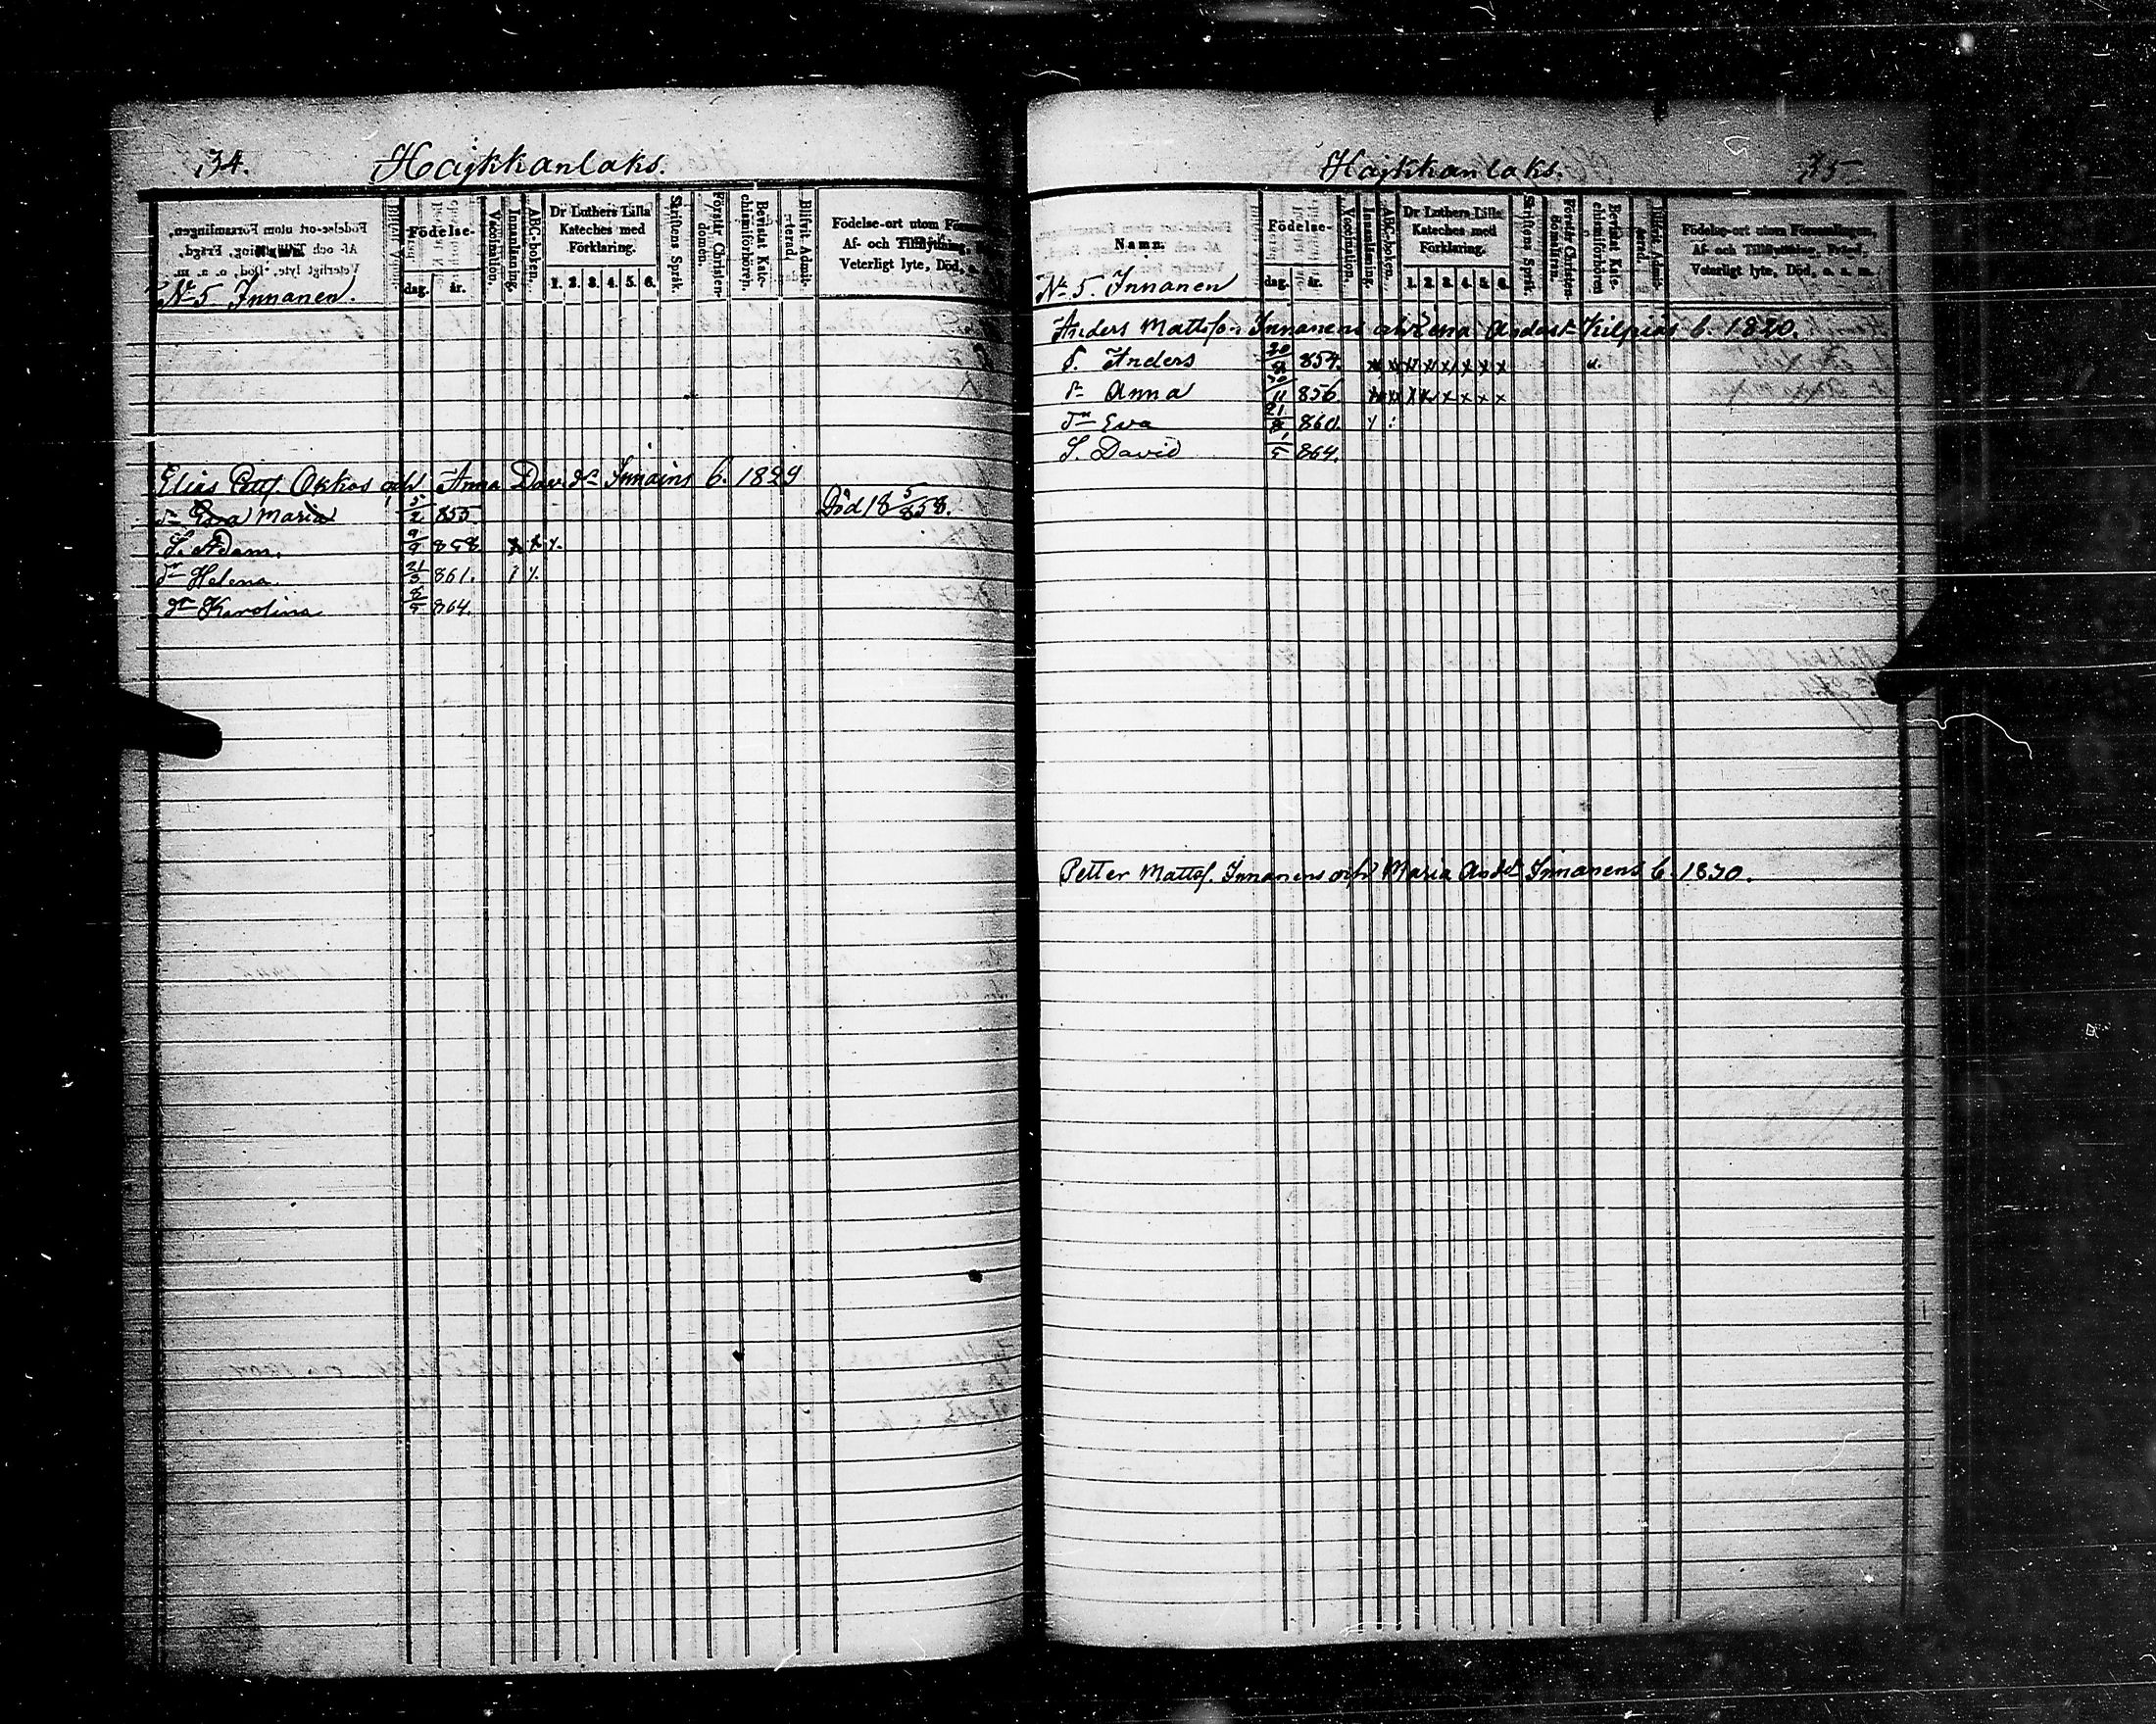 34. Hajkkanlaks.
Namn.
Födelse-
dag. år.
Vaccination.
Innanläsning.
ABC-boken.
Dr Luthers Lilla Kateches med Förklaring.
1. 2. 3. 4. 5. 6.
Skriftens Språk.
Förstår Christendomen.
Bevistat Katechismiförhören.
Blifvit Admitterad.
Födelse-ort utom
Af- och Tillflyttning,
Veterligt lyte, Död, o.
No 5. Innanen.
Elias Okkos och Anna Davdr Innains b. 1829
dr Eva Maria 5/2 855. Död 18 5/8 58.
S. Adam. 9/9 858 x x x.
dr Helena. 21/3 861.
dr Karolina 8/5 864.
Hajkkanlaks. 35
Namn.
Födelse-
dag. år.
Vaccination.
Innanläsning.
ABC-boken.
Dr Luthers Lilla Kateches med Förklaring.
1. 2. 3. 4. 5. 6.
Skriftens Språk.
Förstår Christendomen.
Bevistat Katechismiförhören
Födelse-ort utom Församlingen,
Af- och Tillflyttning, Frejd,
Veterligt lyte, Död, o. a. m.
No 5. Innanen
Anders Mattson Innanens och Lena Andersdr Kilpias b. 1820.
S. Anders 854. x x x x x x x x
dr Anna 11 856 x x x x x x x x
dr Eva 21 860.
S. David 1/5 864.
Petter Mattss. Innanens och Maria Anddr Innanens b. 1830.